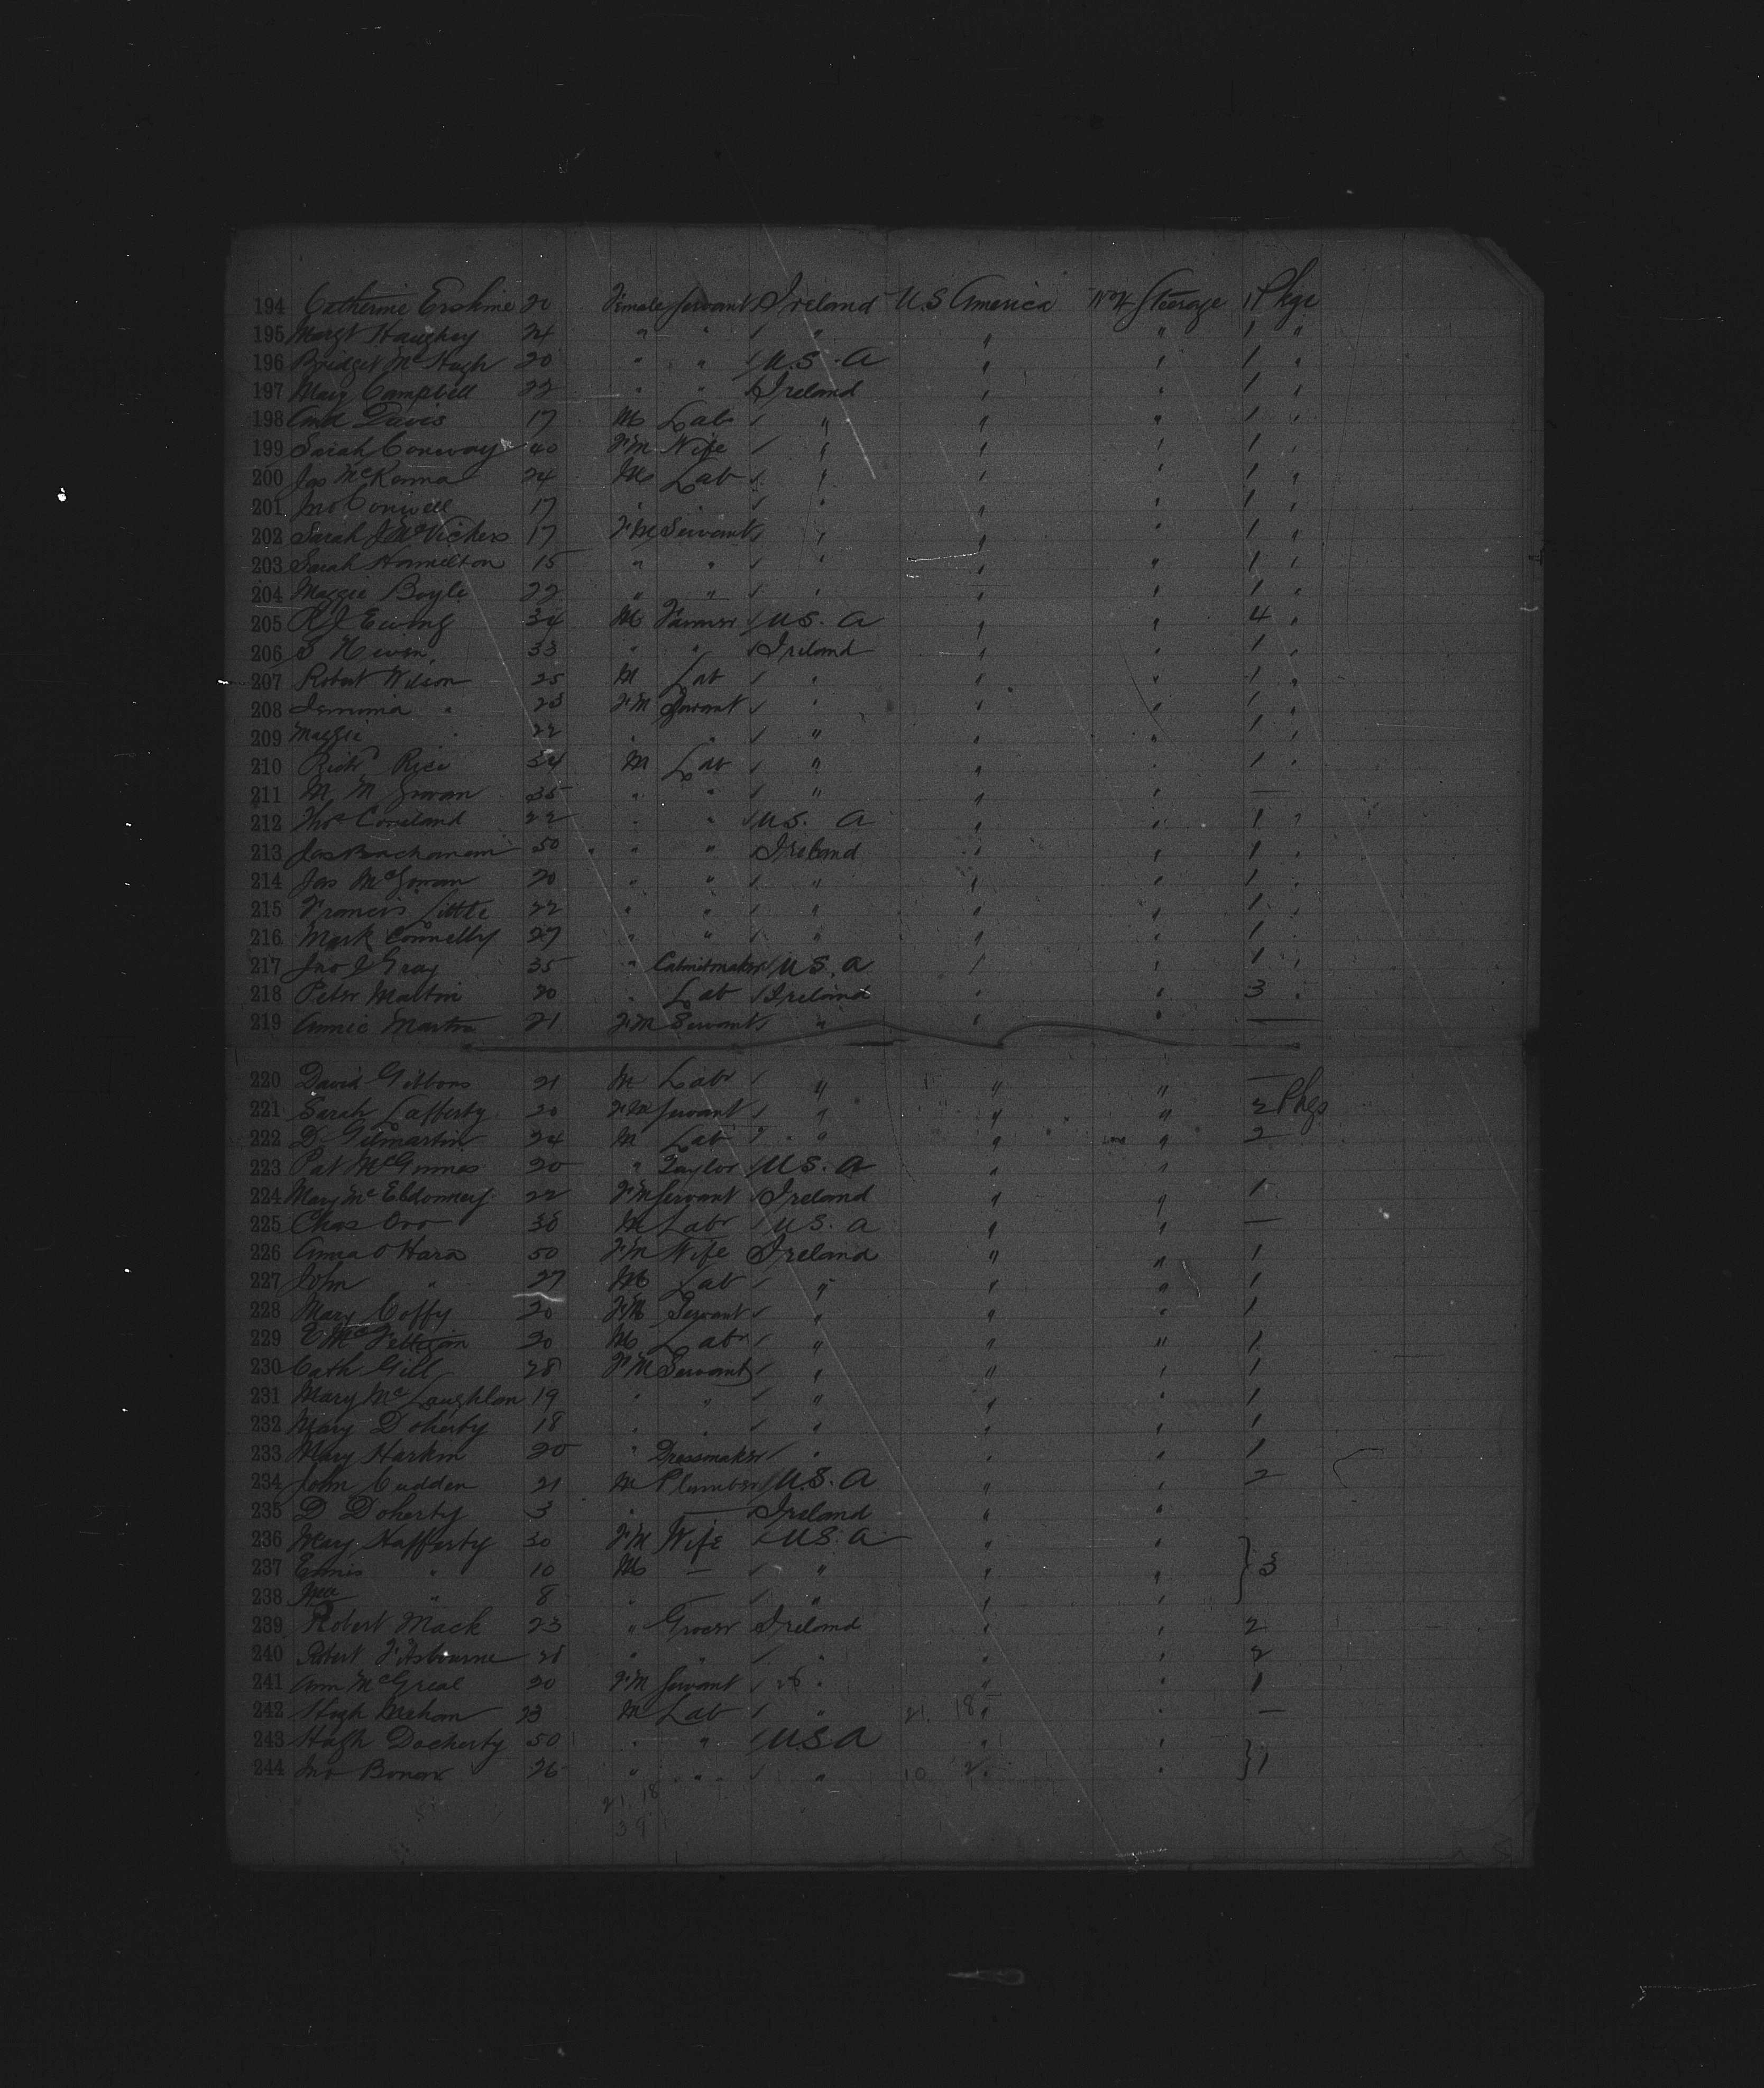 194 Catherine Erskine 20 Female Servant Ireland U.S America Steerage 1 Pkge
195 Margt Haughey 24 " " " " " 1 "
196 Bridget McHugh 20 " " U.S. A " " 1 "
197 Mary Campbell 22 " " Ireland " " 1 "
198 Davis 17 M Lab " " " 1 "
199 Sarah Conway 40 FM Wife " " " 1 "
200 Jas McKenna 24 M Lab " " " 1 "
201 Jno Conwell 17 " " " " " 1 "
202 Sarah J McVickers 17 FM Servant " " " 1 "
203 Sarah Hamilton 15 " " " " " 1 "
204 Maggie Boyle 22 " " " " " 1 "
205 R J Ewing 34 M Farmer U.S. A " " 4 "
206 S Niven 33 " " Ireland " " 1 "
207 Robert Wilson 25 M Lab " " " 1 "
208 Jemima " 23 FM Servant " " " 1 "
209 Maggie " 22 " " " " " 1 "
210 Richd Rice 34 M Lab " " " 1 "
211 35 " " " " " —
212 Thos Copeland 22 " " U.S. A " " 1 "
213 Jas 50 " " Ireland " " 1 "
214 Jas McGowan 20 " " " " " 1 "
215 Francis Little 22 " " " " " 1 "
216 Mark Connelly 27 " " " " " 1 "
217 Jno J Gray 35 " Cabinetmaker U.S. A " " 1 "
218 Peter Martin 20 " Lab Ireland " " 3 "
219 Annie Martin 21 FM Servant " " " —
220 David Gibbons 21 M Labr " " " —
221 Sarah Lafferty 20 FM Servant " " " 2 Pkgs
222 D Gilmartin 24 M Lab " " " 2
223 Pat McGinnes 20 " Taylor U.S. A " "
224 Mary 22 FM Servant Ireland " " 1
225 Chas Orr 30 M Labr U.S. A " " —
226 Anna O Hara 50 FM Wife Ireland " " 1
227 John " 27 M Lab " " " 1
228 Mary Coffy 20 FM Servant " " " 1
229 20 M Labr " " " 1
230 Cath Gill 28 FM Servant " " " 1
231 Mary McLaughlan 19 " " " " " 1
232 Mary Doherty 18 " " " " " 1
233 Mary Harkin 20 " Dressmaker " " " 1
234 John Cudden 21 M Plumber U.S. A " " 2
235 D Doherty 3 " — Ireland " "
236 Mary Hafferty 30 FM Wife U.S. A " "
237 Ennis " 10 M — " " " } 3
238 " 8 " — " " "
239 Robert Mack 23 " Grocer Ireland " " 2
240 Robert Fitsbourne " " " " " 2
241 Ann McGreal 20 FM Servant " " " 1
242 Hugh Mehan 23 M Lab " 21. 18 " " —
243 Hugh Docherty 50 " " U.S A " "
244 Jno Bonar 26 " " " 10 2 " " } 1
21. 18
39